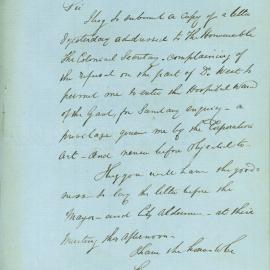 Sir
I beg to submit a Copy of a letter
of yesterday addressed to the Honourable
The Colonial Secretary - complaining of
the refusal on the part of Dr West to
permit me to enter the Hospital Ward
of the Gaol, for Sanitary enquiry - a
privilege given me by the Corporation
Act - and never before objected to -
You will have the good-
ness to lay the letter before the
Mayor - and City Aldermen - at their
Meeting this afternoon -
I have the honor to be